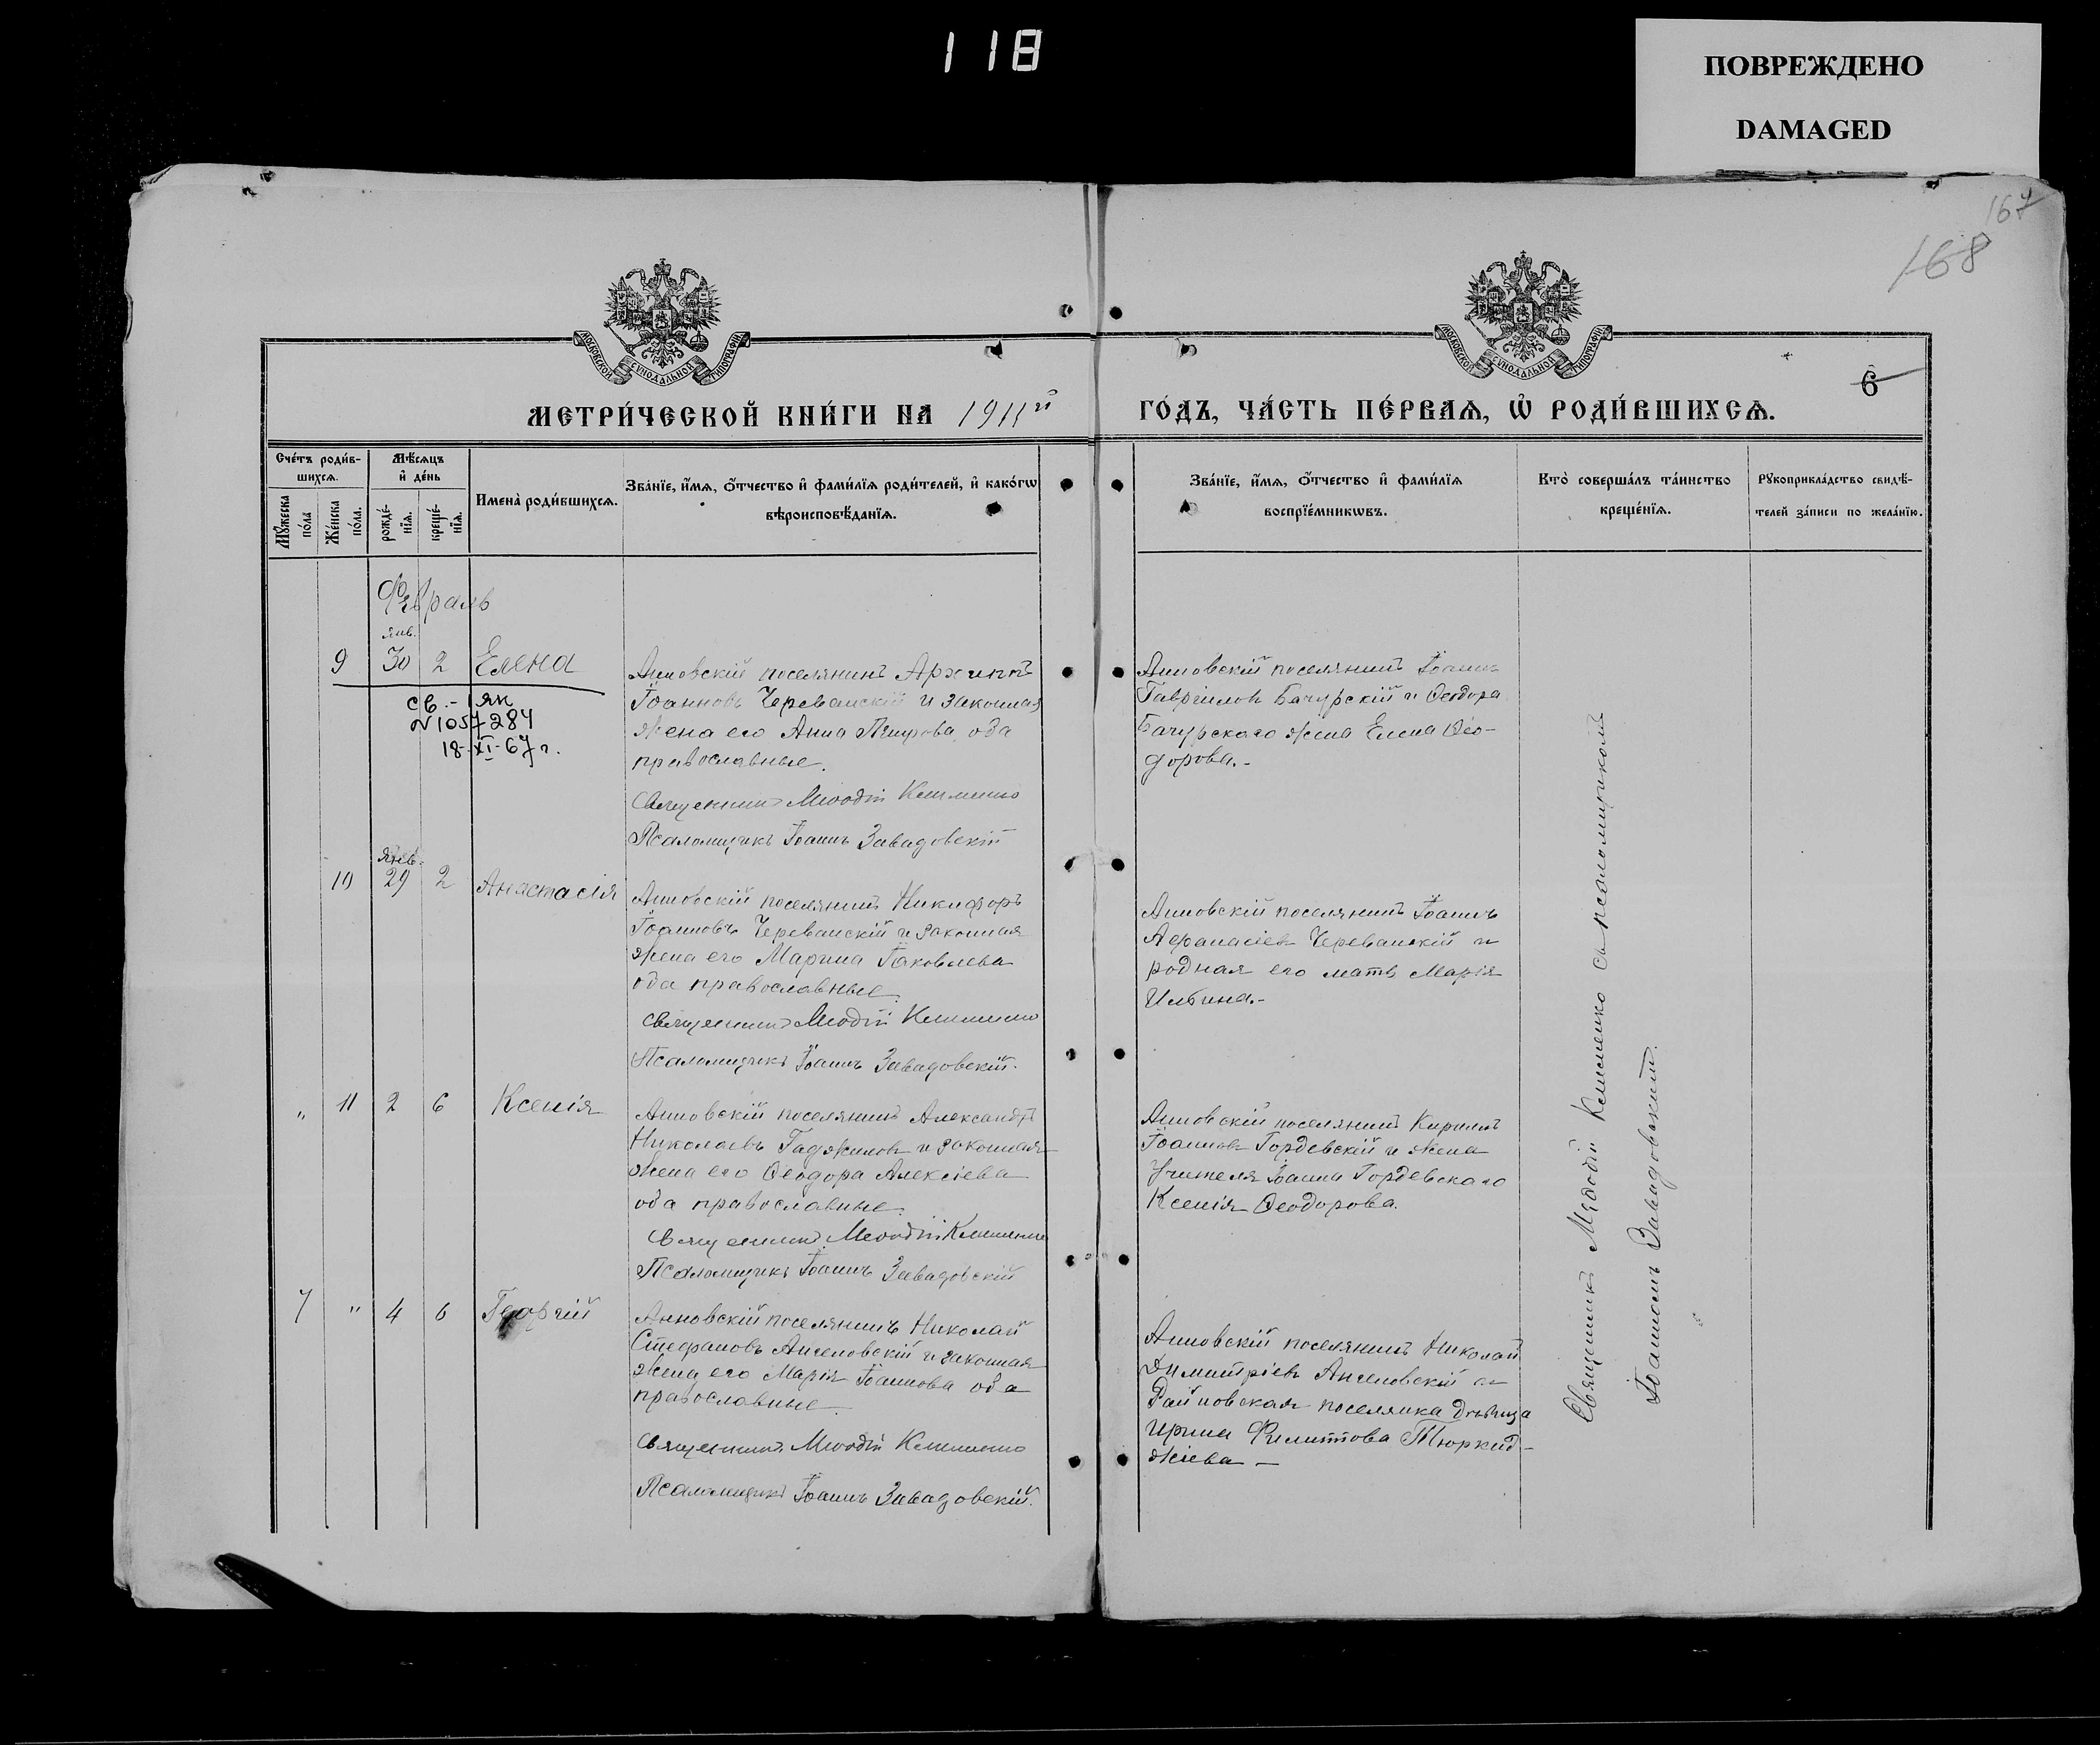 118
ПОВРЕЖДЕНО
DAMAGED
167
168
МОСКОВСКОЙ СѴНОДАЛЬНОЙ ТИПОГРАФІИ
МОСКОВСКОЙ СѴНОДАЛЬНОЙ ТИПОГРАФІИ
6
МЕТРИ́ЧЕСКОЙ КНИ́ГИ НА 1911й
ГО́ДЪ, ЧА́СТЬ ПЕ́РВАѦ, Ѡ҆ РОДИ́ВШИХСѦ.
Сче́тъ роди́в-
шихсѧ.
Мꙋ́жеска по́ла
Же́нска по́ла.
Мѣ́сѧцъ
и҆ де́нь
рожде́-
нїѧ.
креще́-
нїѧ.
Имена̀ роди́вшихсѧ.
Зва́нїе, и҆́мѧ, ѻ҆́тчество и҆ фами́лїѧ роди́телей, и҆ како́гѡ
вѣроисповѣ́данїѧ.
Зва́нїе, и҆́мѧ, ѻ҆́тчество и҆ фами́лїѧ
воспрїе́мникѡвъ.
Кто̀ соверша́лъ та́инство
креще́нїѧ.
Рꙋкоприкла́дство свидѣ́-
телей за́писи по жела́нїю.
Февраль
янв.
9 30 2 Елена
св. - 1 ЯК
N 1057284
18-XI-67 г.
Анновскій поселянинъ Архиппъ
Іоанновъ Череванскій и законная
жена его Анна Петрова, оба
православные.
Священникъ Меѳодій Клименко
Псаломщикъ Іоаннъ Завадовскій
Анновскій поселянинъ Іоаннъ
Гавріиловъ Бачурскій и Ѳеодора
Бачурскаго жена Елена Ѳео-
дорова.-
Янв.
10 29 2 Анастасія
Анновскій поселянинъ Никифоръ
Іоанновъ Череванскій и законная
жена его Марина Іаковлева
оба православные.
Священникъ Меѳодій Клименко
Псаломщикъ Іоаннъ Завадовскій.
Анновскій поселянинъ Іоаннъ
Аѳанасіевъ Череванскій и
родная его мать Марія
Ильина.-
" 11 2 6 Ксенія
Анновскій поселянинъ Александръ
Николаевъ Гаджиловъ и законная
жена его Ѳеодора Алексіева
оба православные.
Священникъ Меѳодій Клименко
Псаломщикъ Іоаннъ Завадовскій
Анновскій поселянинъ Кириллъ
Іоанновъ Гордевскій и жена
Учителя Іоанна Гордевскаго
Ксенія Ѳеодорова.
7 " 4 6 Георгій
Анновскій поселянинъ Николай
Стефановъ Ангеловскій и законная
жена его Марія Іоаннова оба
православные.
Священникъ Меѳодій Клименко
Псаломщикъ Іоаннъ Завадовскій.
Анновскій поселянинъ Николай
Димитріевъ Ангеловскій и
поселянка дѣвица
Ирина Филиппова Тюркед-
жіева —
Священникъ Меѳодій Клименко съ псаломщикомъ
Іоанномъ Завадовскимъ.